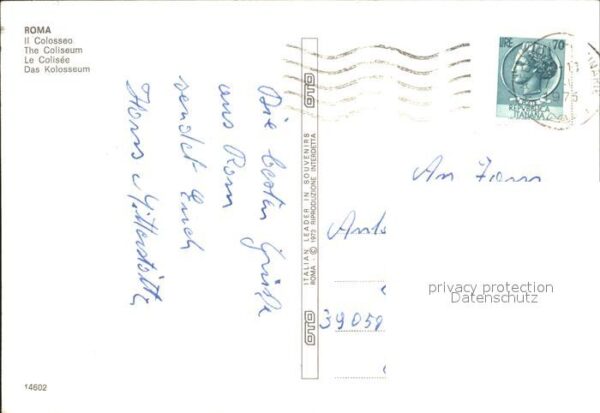 ROMA
Il Colosseo
The Coliseum
Le Colisée
Das Kolosseum
Die besten Grüße
aus Rom
sendet Euch
Hans
OTO
ITALIAN LEADER IN SOUVENIRS
ROMA - © 1973 RIPRODUZIONE INTERDETTA
OTO
LIRE 70
REPUBBLICA
ITALIANA
An Fam
39050
privacy protection
Datenschutz
14602